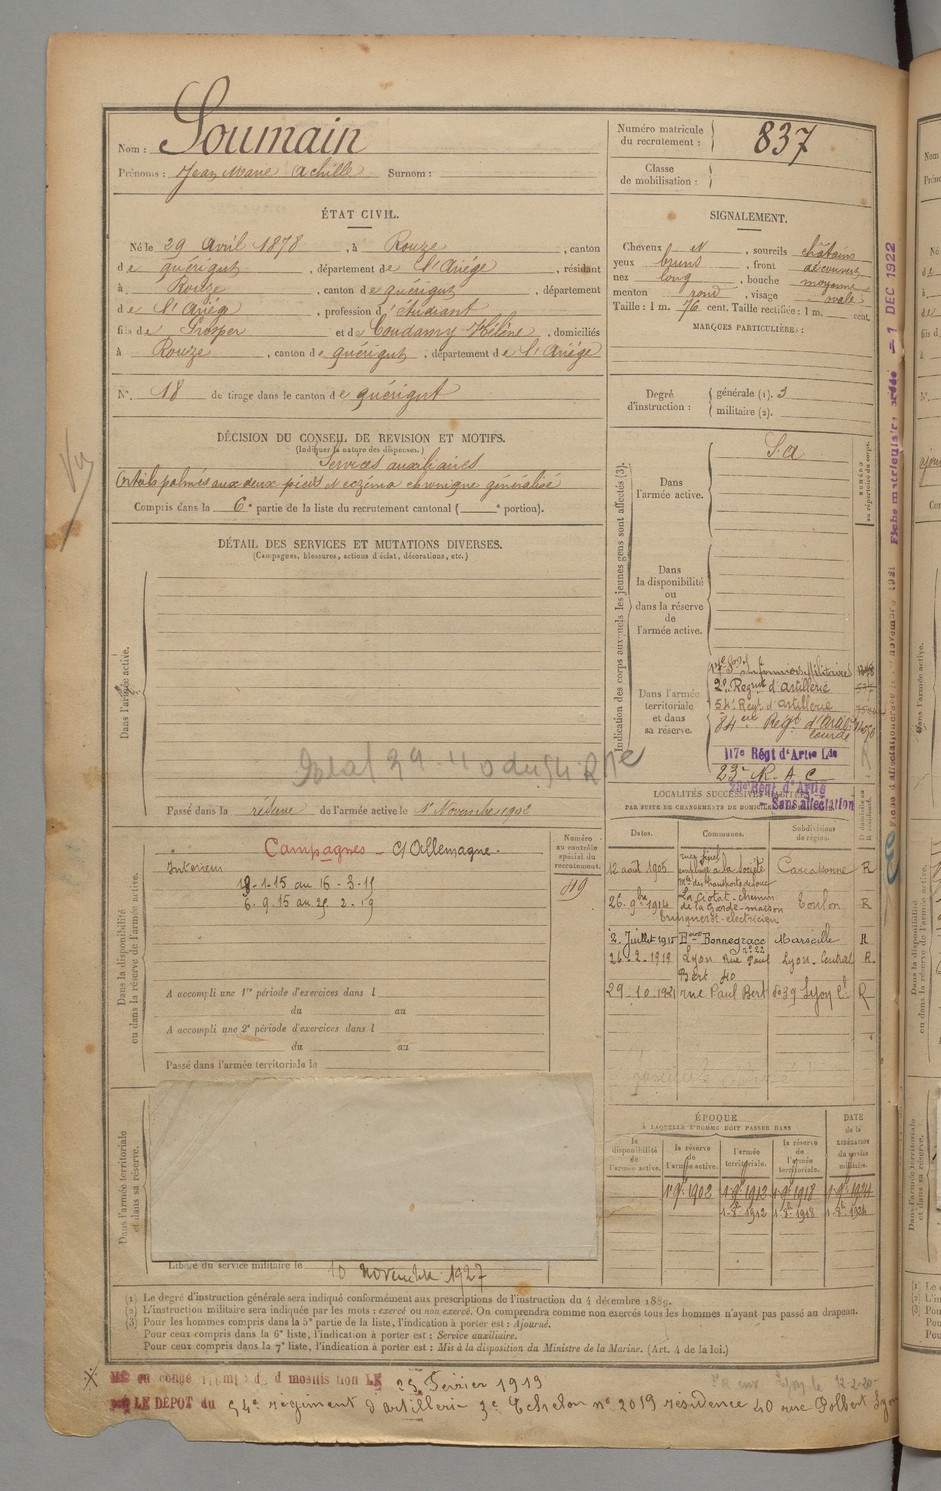 Nom : Soumain
Prénoms : Jean Marie Achille Surnom :
ÉTAT CIVIL.
Né le 29 Avril 1878, à Rouze, canton
de quérigut, département de l'Ariége, résidant
à Rouze, canton de quérigut, département
de l'Ariég, profession d'étudiant
fils de Prosper et de Coudamy Hélène, domiciliés
à Rouze, canton de quérigut, département de l'Ariége
N°. 18 de tirage dans le canton de quérigut
DÉCISION DU CONSEIL DE REVISION ET MOTIFS.
(Indiquer la nature des dispenses.)
Services auxiliaires
Orteils palmés aux deux pieds et eczéma chronique généralisé
Compris dans la 6e partie de la liste du recrutement cantonal ( e portion).
DÉTAIL DES SERVICES ET MUTATIONS DIVERSES.
(Campagnes, blessures, actions d'éclat, décorations, etc.)
Dans l'armée active.
Passé dans la réserve de l'armée active le 1r Novembre 1902
Dans la disponibilité
ou dans la réserve de l'armée active.
Campagnes - C/ Allemagne.
Intérieur
18-1-15 au 16-3-15
6-9-15 au 25 2-19
Numéro
au contrôle
spécial du
recrutement.
49
A accompli une 1re période d'exercices dans l
du au
A accompli une 2e période d'exercices dans l
du au
Passé dans l'armée territoriale le
Dans l'armée territoriale
et dans sa réserve.
Libéré du service militaire le 10 novembre 1927
Numéro matricule
du recrutement : 837
Classe
de mobilisation :
SIGNALEMENT.
Cheveux et, sourcils châtains
yeux bruns, front découvert
nez long, bouche moyenne
menton rond, visage ovale
Taille : 1 m. 76 cent. Taille rectifiée : 1 m. cent.
MARQUES PARTICULIÈRES :
Degré
d'instruction :
générale (1). 3
militaire (2).
Indication des corps auxquels les jeunes gens sont affectés (3).
Dans
l'armée active.
S. a
NUMÉRO
au répertoire du corps.
Dans
la disponibilité
ou
dans la réserve
de
l'armée active.
Dans l'armée
territoriale
et dans
sa réserve.
2e Regmt d'artillerie
54e Regt d'artillerie
84eme Regt d'Artie
lourde
117e Régt d'Artie Lde
23e R. A. C
23e Régt d'Artie
Sans affectation
LOCALITÉS SUCCESSIVES HABITÉES
PAR SUITE DE CHANGEMENTS DE DOMICILE
Dates. Communes. Subdivisions
de région.
12 août 1905 Carcassonne R
26. 9bre 1914 La Ciotat - chemin
de la Garde - maison
électricien Toulon R
2. Juillet 1915 Bonnegrace Marseille R
26-2-1919 Lyon Rue Paul
Bert 40 Lyon-Central R.
29-10-1921 rue Paul Bert Lyon Cl R
ÉPOQUE
À LAQUELLE L'HOMME DOIT PASSER DANS
DATE
de la
LIBÉRATION
du service
militaire.
la
disponibilité
de
l'armée active.
la réserve
de
l'armée active.
l'armée
territoriale.
la réserve
de
l'armée
territoriale.
1r 9bre 1902 1-9bre 1912 1-9bre 1918 1-9bre 1924
1912 1918 1924
(1) Le degré d'instruction générale sera indiqué conformément aux prescriptions de l'instruction du 4 décembre 1889.
(2) L'instruction militaire sera indiquée par les mots : exercé ou non exercé. On comprendra comme non exercés tous les hommes n'ayant pas passé au drapeau.
(3) Pour les hommes compris dans la 5e partie de la liste, l'indication à porter est : Ajourné.
Pour ceux compris dans la 6e liste, l'indication à porter est : Service auxiliaire.
Pour ceux compris dans la 7e liste, l'indication à porter est : Mis à la disposition du Ministre de la Marine. (Art. 4 de la loi.)
25 Fevrier 1919
par LE DÉPOT du 54e régiment d'artillerie 3e Echelon n° 2019 résidence 40 rue
1 DEC 1922